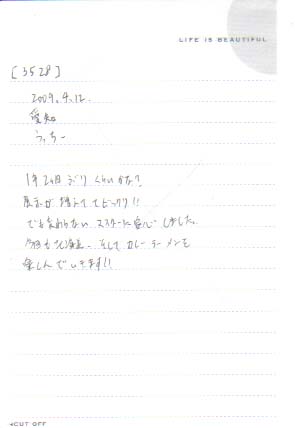 LIFE IS BEAUTIFUL
[3528]
2009.4.12.
愛知
うっちー
1年2ヵ月ぶりくらいかな?
展示が増えててビックリ!!
でも変わらないマスターに安心しました。
今日も北海道、そしてカレーラーメンを
楽しんでいきます!!
◂CUT OFF